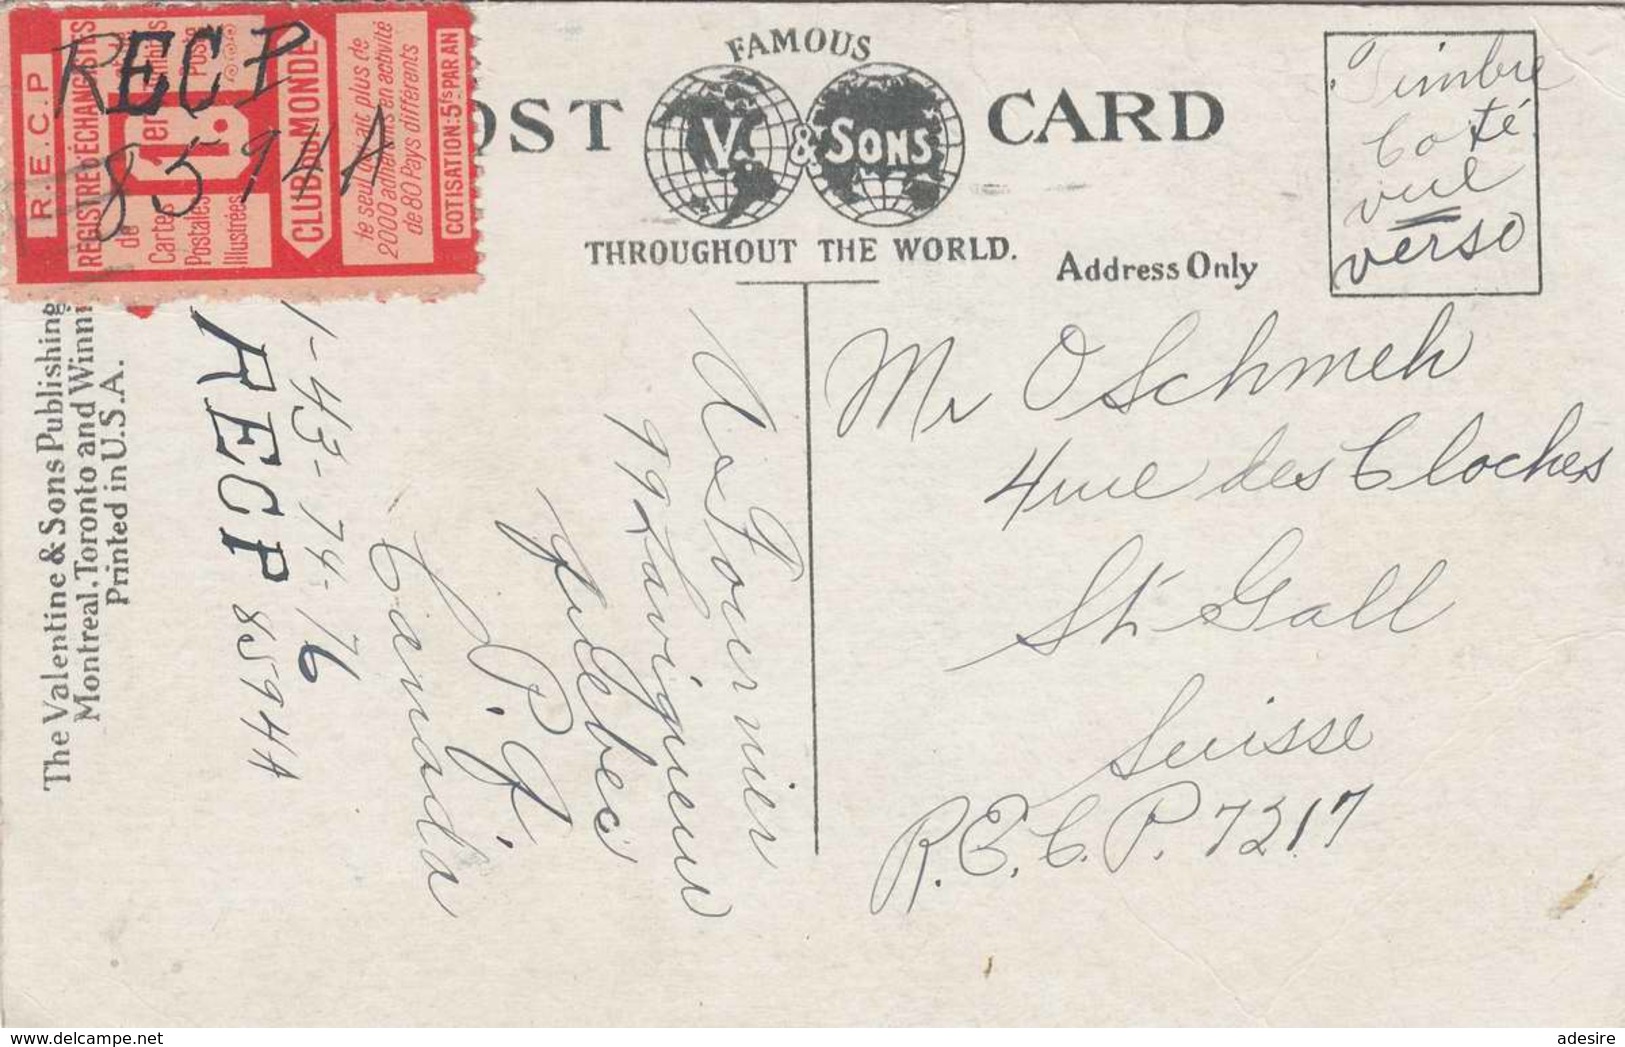 R.E.C.P
REGISTRE D'ÉCHANGISTES
de
Cartes
Postales
Illustrées
1er
CLUB du MONDE
te seul qui ait plus de
2000 adhérents en activité
de 80 Pays différents
COTISATION: 5fs PAR AN
RECP
8594A
OST CARD
FAMOUS
V. & SONS
THROUGHOUT THE WORLD.
Address Only
Timbre
Coté
vue
verso
The Valentine & Sons Publishing
Montreal, Toronto and Winni
Printed in U.S.A.
1-43-74-76
RECP 8594A
As Fournier
99 Lavigueur
Quebec
P.Q.
Canada
Mr O Schmeh
4 rue des Cloches
St Gall
Suisse
R.E.C.P. 7217
www.delcampe.net
adesire